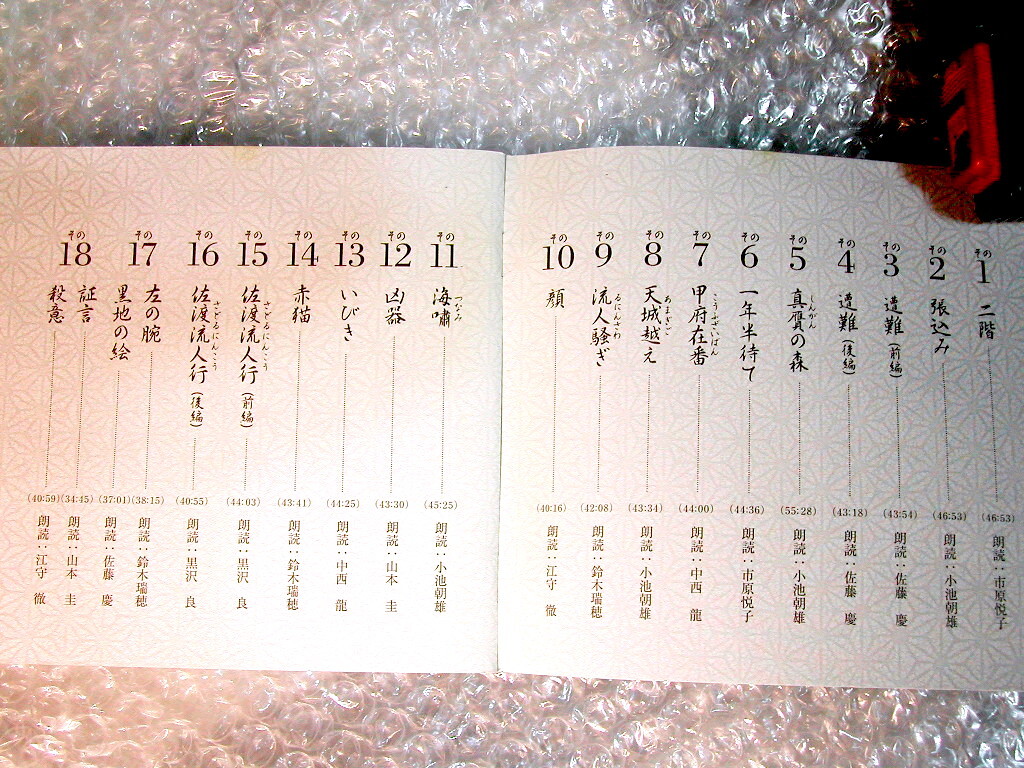 その1 二階 (46:53) 朗読：市原悦子
その2 張込み (46:53) 朗読：小池朝雄
その3 遭難（前編） (43:54) 朗読：佐藤 慶
その4 遭難（後編） (43:18) 朗読：佐藤 慶
その5 真贋の森 しんがん (55:28) 朗読：小池朝雄
その6 一年半待て (44:36) 朗読：市原悦子
その7 甲府在番 こうふざいばん (44:00) 朗読：中西 龍
その8 天城越え あまぎご (43:34) 朗読：小池朝雄
その9 流人騒ぎ るにんさわ (42:08) 朗読：鈴木瑞穂
その10 顔 (40:16) 朗読：江守 徹
その11 海嘯 つなみ (45:25) 朗読：小池朝雄
その12 凶器 (43:30) 朗読：山本 圭
その13 いびき (44:25) 朗読：中西 龍
その14 赤猫 (43:41) 朗読：鈴木瑞穂
その15 佐渡流人行（前編） さどるにんこう (44:03) 朗読：黒沢 良
その16 佐渡流人行（後編） さどるにんこう (40:55) 朗読：黒沢 良
その17 左の腕 (38:15) 朗読：鈴木瑞穂
黒地の絵 (37:01) 朗読：佐藤 慶
その18 証言 (34:45) 朗読：山本 圭
殺意 (40:59) 朗読：江守 徹